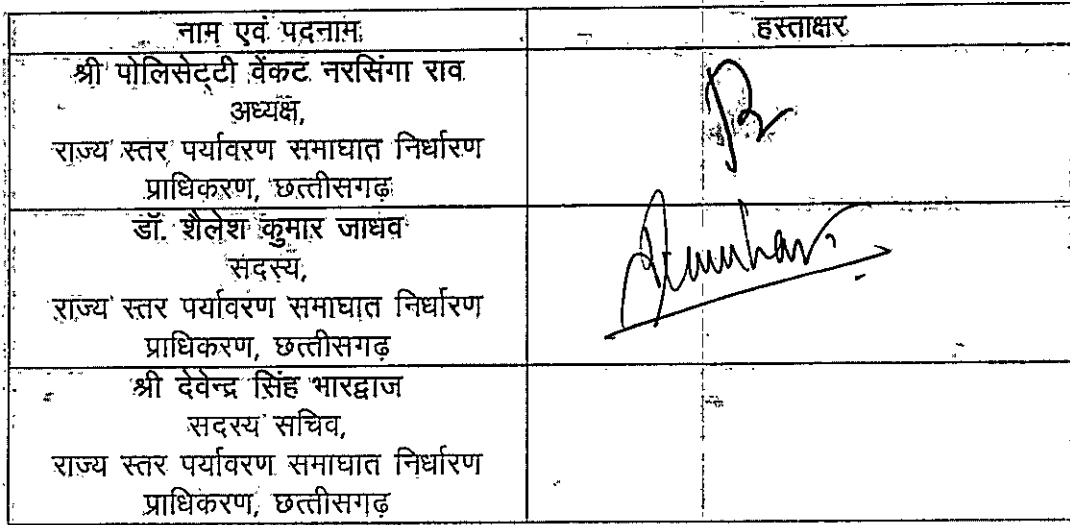 नाम एवं पदनाम हस्ताक्षर
श्री पोलिसेट्टी वेंकट नरसिंगा राव
अध्यक्ष,
राज्य स्तर पर्यावरण समाघात निर्धारण
प्राधिकरण, छत्तीसगढ़
डॉ. शैलेश कुमार जाधव
सदस्य,
राज्य स्तर पर्यावरण समाघात निर्धारण
प्राधिकरण, छत्तीसगढ़
श्री देवेन्द्र सिंह भारद्वाज
सदस्य सचिव,
राज्य स्तर पर्यावरण समाघात निर्धारण
प्राधिकरण, छत्तीसगढ़